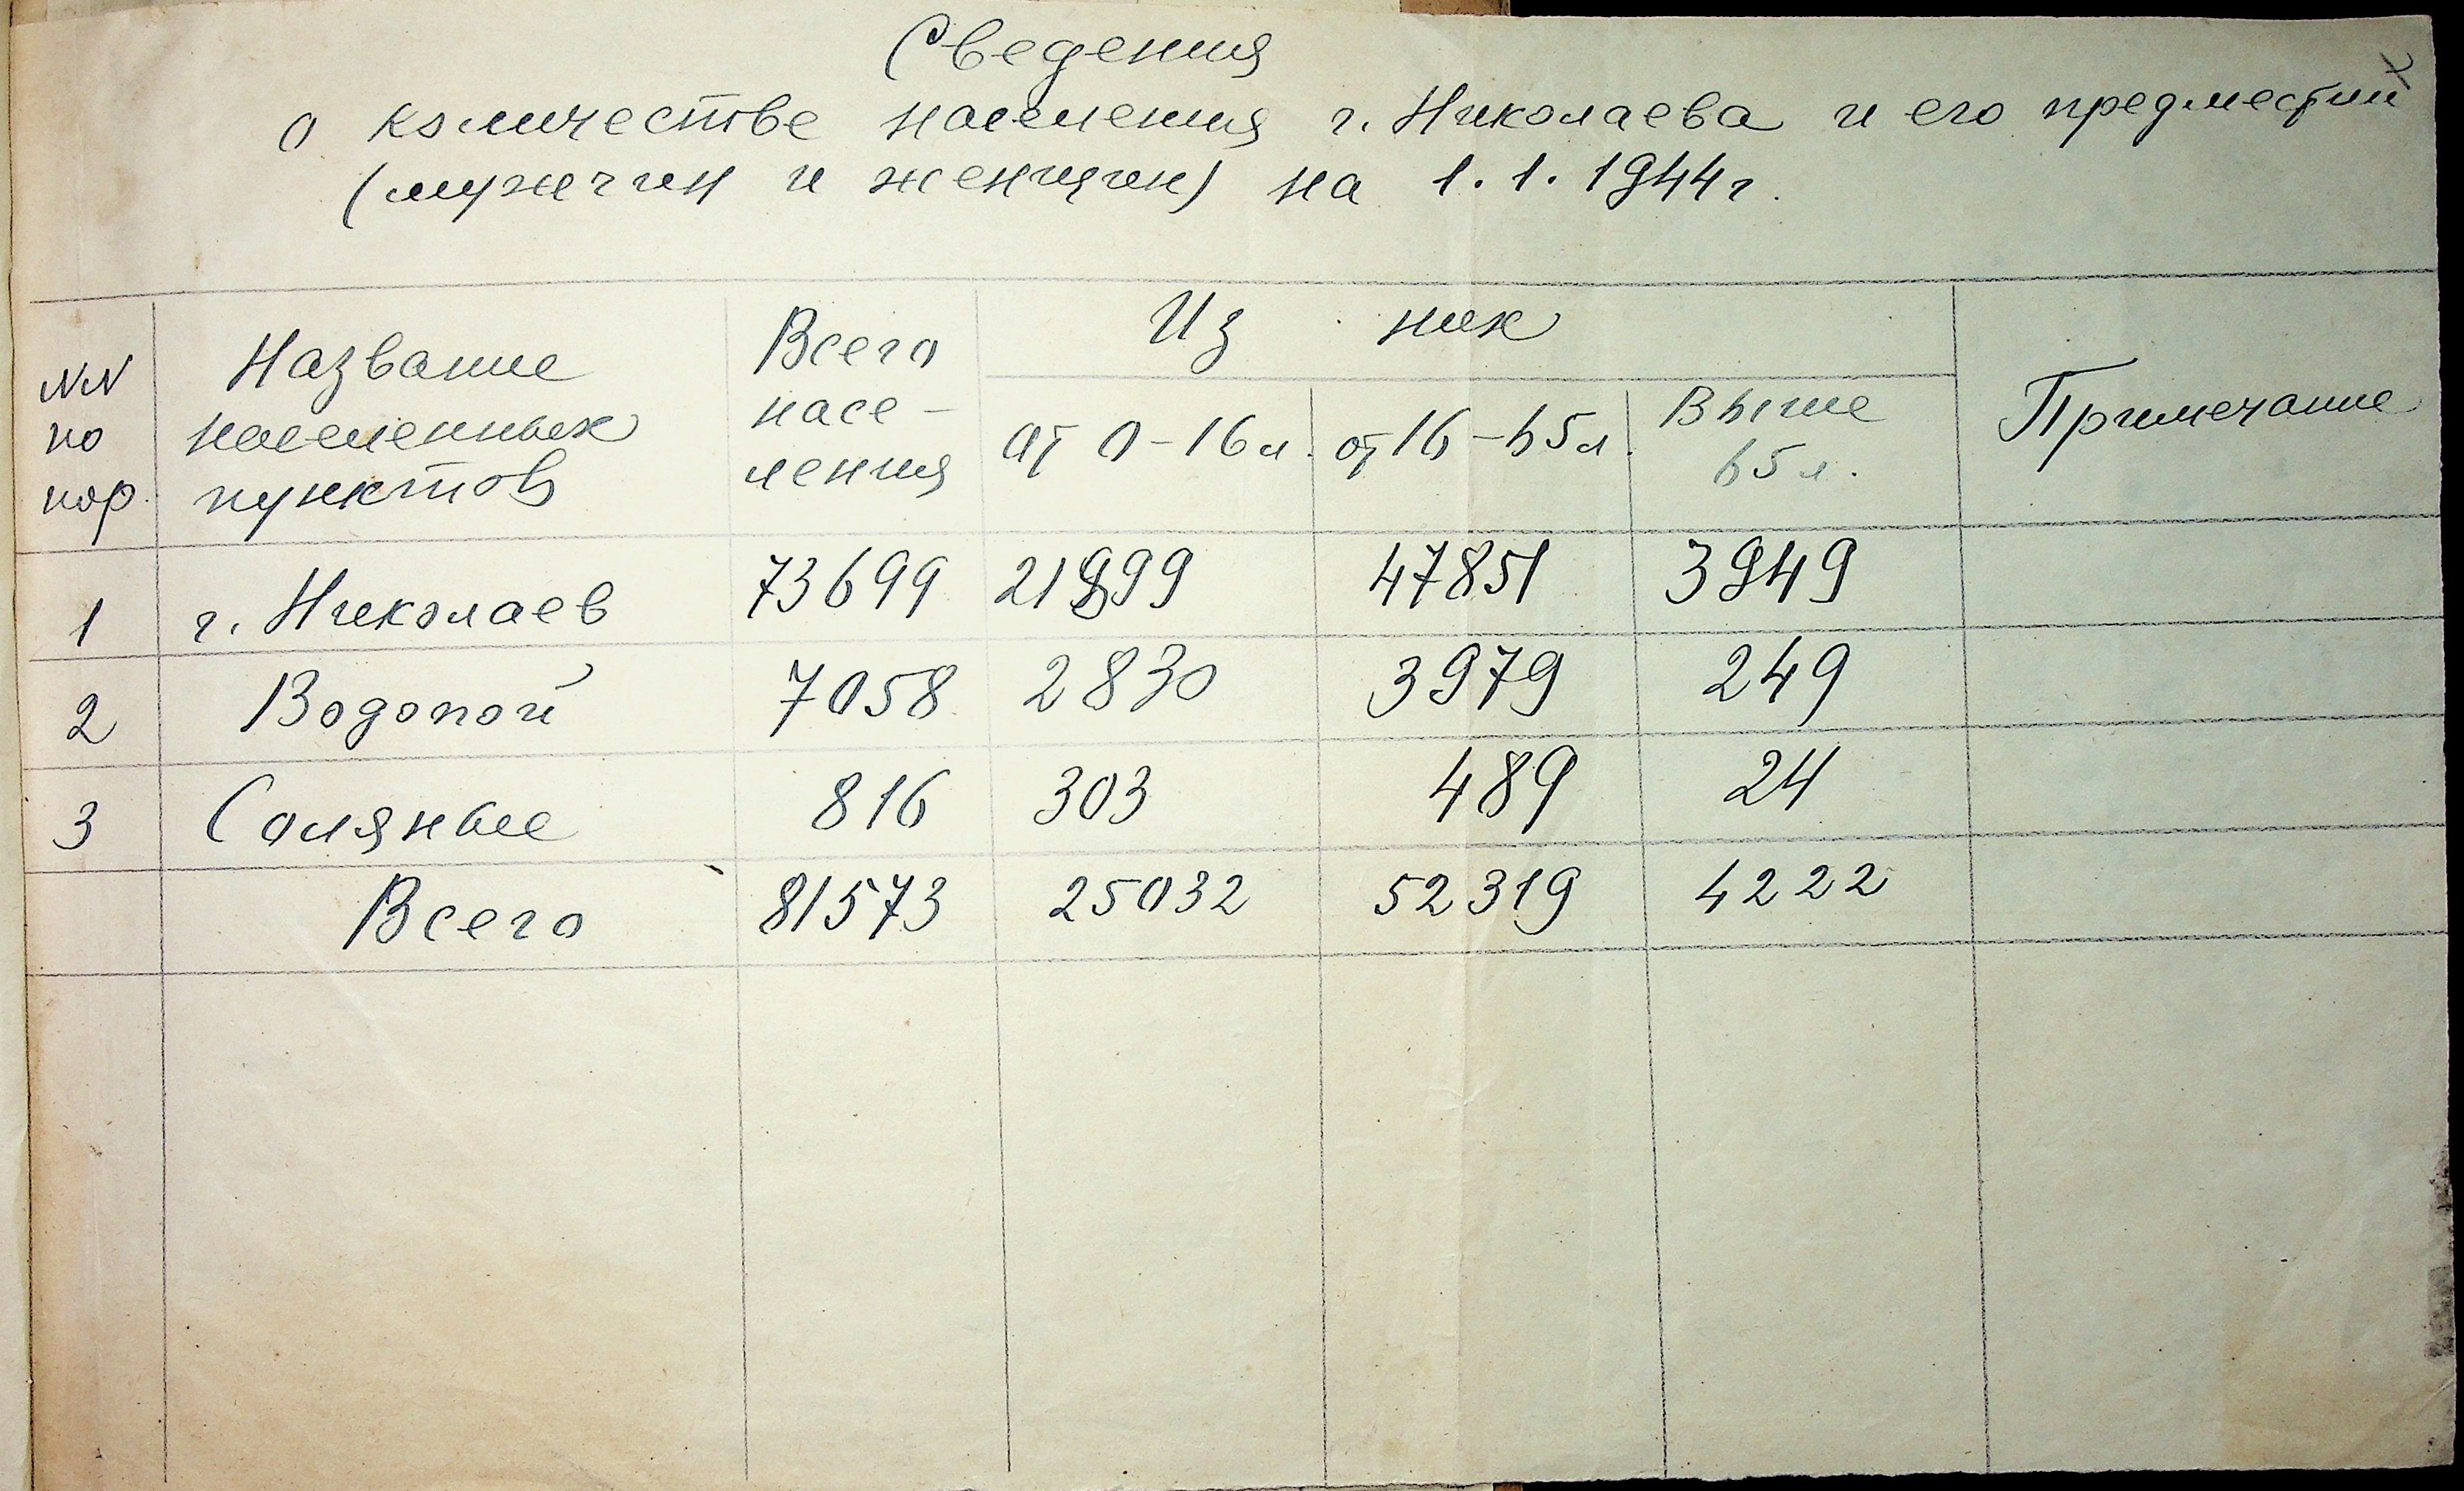 Сведения
о количестве населения г. Николаева и его предместий
(мужчин и женщин) на 1.1.1944 г.
NN по пор.
Название населенных пунктов
Всего насе-ления
Из них
Примечание
от 0-16 л.
от 16-65 л.
Выше 65 л.
1 г. Николаев 73699 21899 47851 3949
2 Водопой 7058 2830 3979 249
3 Соляные 816 303 489 24
Всего 81573 25032 52319 4222